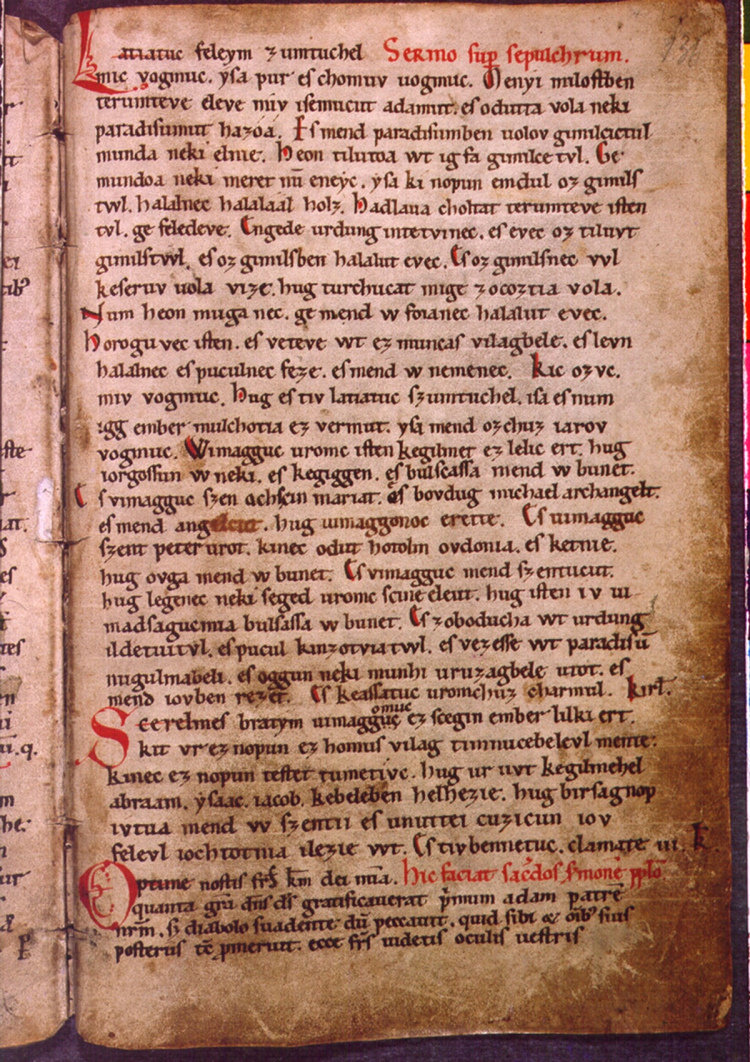 Latiatuc feleym zumtuchel Sermo sup sepulchrum.
mic vogmuc. yſa pur eſ chomuv uogmuc. Menyi miloſtben
terumteve eleve miv iſemucut adamut. eſ odutta vola neki
paradiſumut hazóá. Eſ mend paradiſumben uolov gimilcictul
munda neki elnie. Heon tilutoa wt ig fa gimilce tvl. Ge
mundoa neki meret nū eneyc. yſa ki nopun emdul oz gimilſ
twl. halalnec halalaal holz. Hadlaua choltat terumteve iſten
tvl. ge feledeve. Engede urdung intetvinec. eſ evec oz tiluvt
gimilſtwl. eſ oz gimilſben halalut evec. Eſ oz gimilſnec vvl
keſeruv uola vize. hug turchucat mige zocoztia vola.
Num heon muga nec. ge mend w foianec halalut evec.
Horogu vec iſten. eſ veteve wt ez muncaſ vilagbele. eſ levn
halalnec eſ puculnec feze. eſ mend w nemenec. Kic ozvc.
miv vogmuc. Hug eſ tiv latiatuc ſzumtuchel. iſa eſ num
igg ember mulchotia ez vermut. yſa mend ozchuz iarov
vogmuc. Wimagguc uromc iſten kegilmet ez lelic ert. hug
iorgoſſun w neki. eſ kegiggen. eſ bulſcaſſa mend w bunet.
Eſ vimagguc ſzen achſcin mariat. eſ bovdug michael archangelt.
eſ mend angelcut. hug uimaggonoc erette. Eſ uimagguc
ſzent peter urot. kinec odut hotolm ovdonia. eſ ketnie.
hug ovga mend w bunet. Eſ vimagguc mend ſzentucut.
hug legenec neki ſeged uromc ſcine eleut. hug iſten iv ui
madſagucmia bulſaſſa w bunet. Eſ zoboducha wt urdung
ildetuitvl. eſ pucul kinzotviatwl. eſ vezeſſe wt paradiſū
nugulmabeli. eſ oggun neki munhi uruzagbele utot. eſ
mend iovben rezet. Eſ keaſſatuc uromchuz charmul. Kirl.
Scerelmes bratym uimaggomuc ez ſcegin ember lilki ert.
kit vr ez nopun ez homus vilag timnucebelevl mente:
kinec ez nopun teſtet tumetivc. hug ur uvt kegilmehel
abraam. yſaac. iacob. kebeleben helhezie. hug birſagnop
ivtua mend w ſzentii eſ unuttei cuzicun iov
felevl iochtotnia ilezie wt. Eſ tiv bennetuc. clamate .iii. K.
Optime noſtis frs̄ km̄ dei mīa. hic faciat sac̄dos ſmonē pp̄lo
quanta grā dn̄s ds̄ gratificauerat p̄mum adam patrē
nr̄m. s; diabolo ſuadente dū peccauit. quid ſibi & oīb; ſuis
posteris tē pmeruit. ecce frs̄ videtis oculis ueſtris